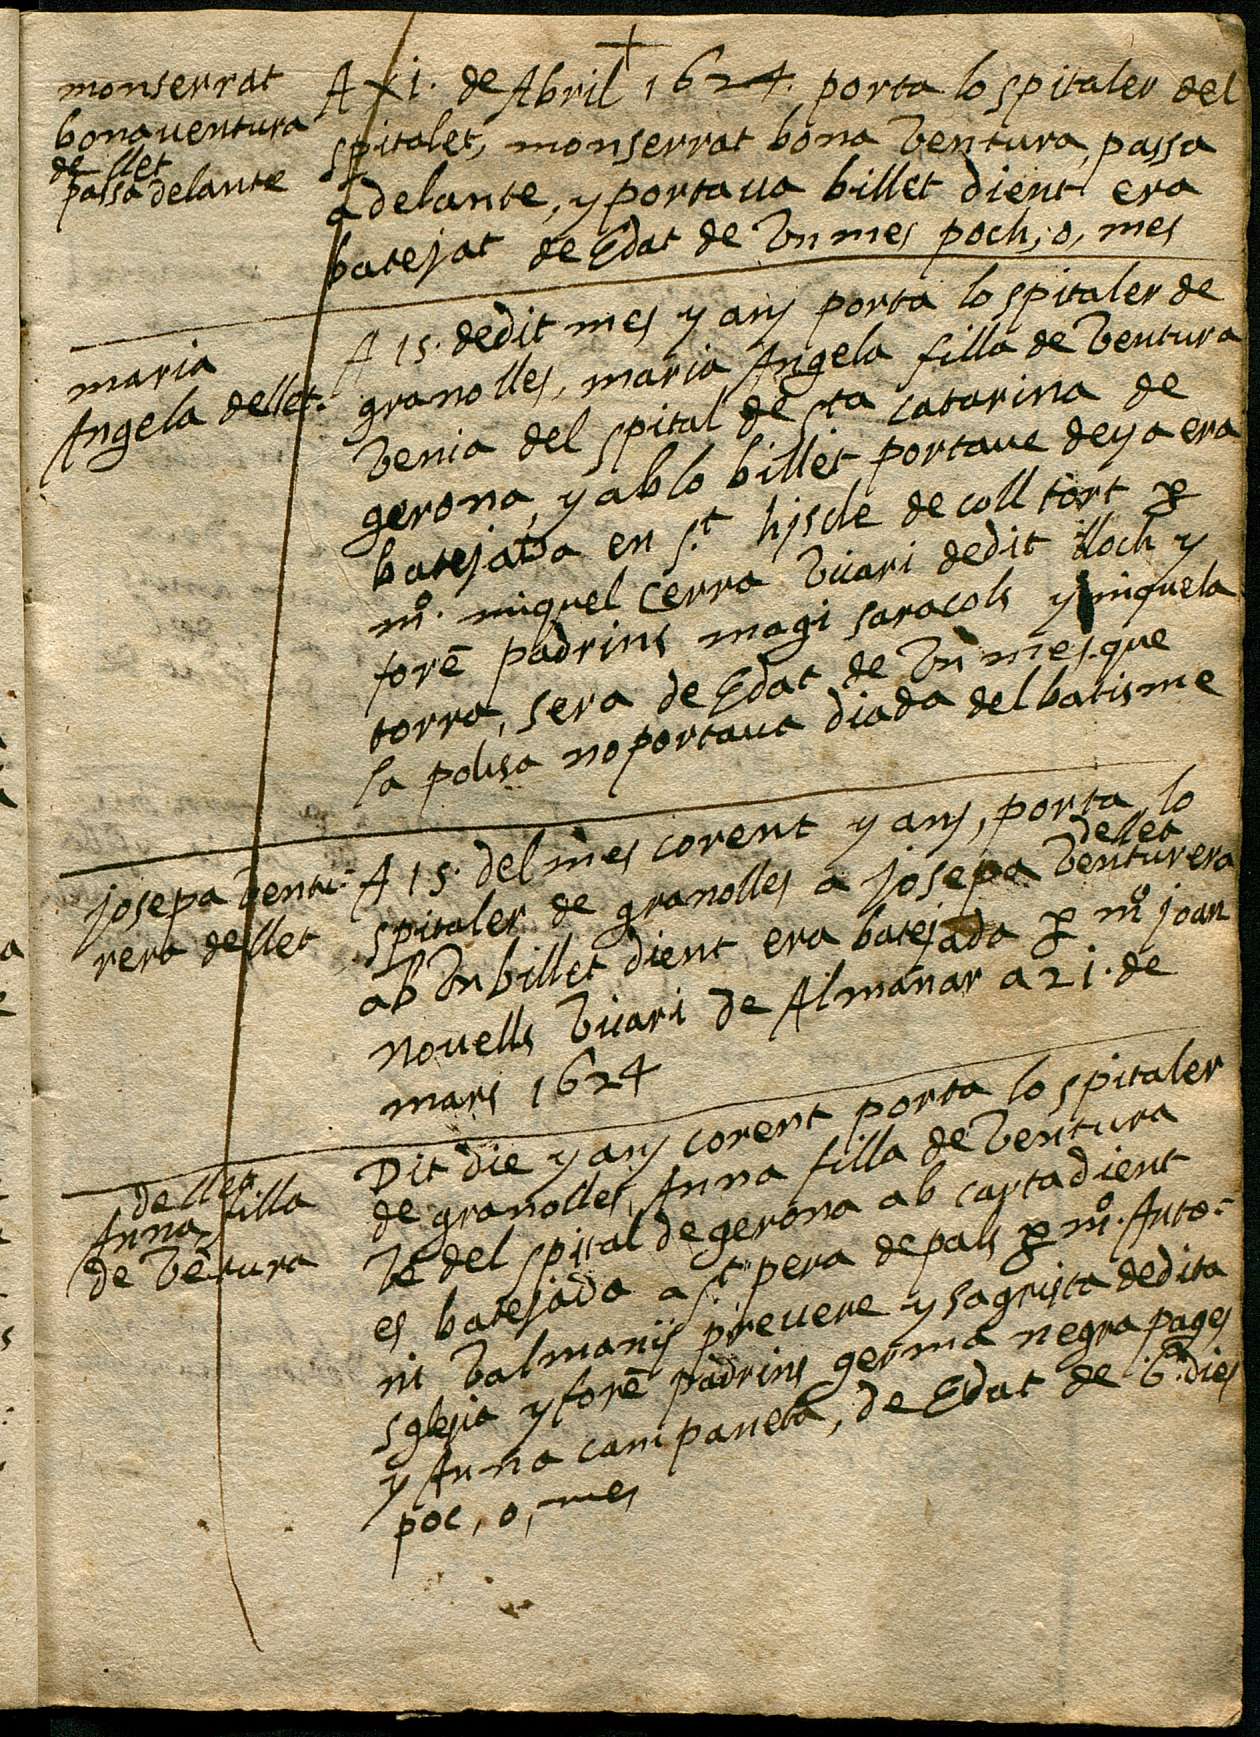 monserrat
bonaventura
de llet
passa delante
A xi. de Abril 1624. porta lo spitaler del
spitalet, monserrat bona Ventura, passa
adelante, y portaua billet dient era
batejat de Edat de Vn mes poch, o, mes
maria
Angela dellet.
A 15. dedit mes y any porta lo spitaler de
granolles, maria Angela filla de Ventura
Venia del spital de sta catarina de
gerona, y ab lo billet portaue deya era
batejada en st. hiscle de coll tort p
mº. miquel cerra Vicari dedit lloch y
forē padrins magi saracols y miquela
torra, sera de Edat de Vn mes. que
la polisa no portaua diada del batisme
josepa Ventu-
rera de llet
A 15. del mes corent y any, porta lo
spitaler de granolles a josepa Venturera
dellet
ab Vn billet dient era batejada p mº joan
nouells Vicari de Almanar a 21. de
mars 1624
de llet
Anna filla
de Vētura
Dit die y any corent porta lo spitaler
de granolles, Anna filla de Ventura
Ve del spital de gerona ab carta dient
es batejada a st. pera de pals p mº. Anto-
ni Valmanÿs preuere y sagrista dedita
sglesia y forē padrins germa negra pages
y Anna campaneta, de Edat de 6. dies
poc, o, mes